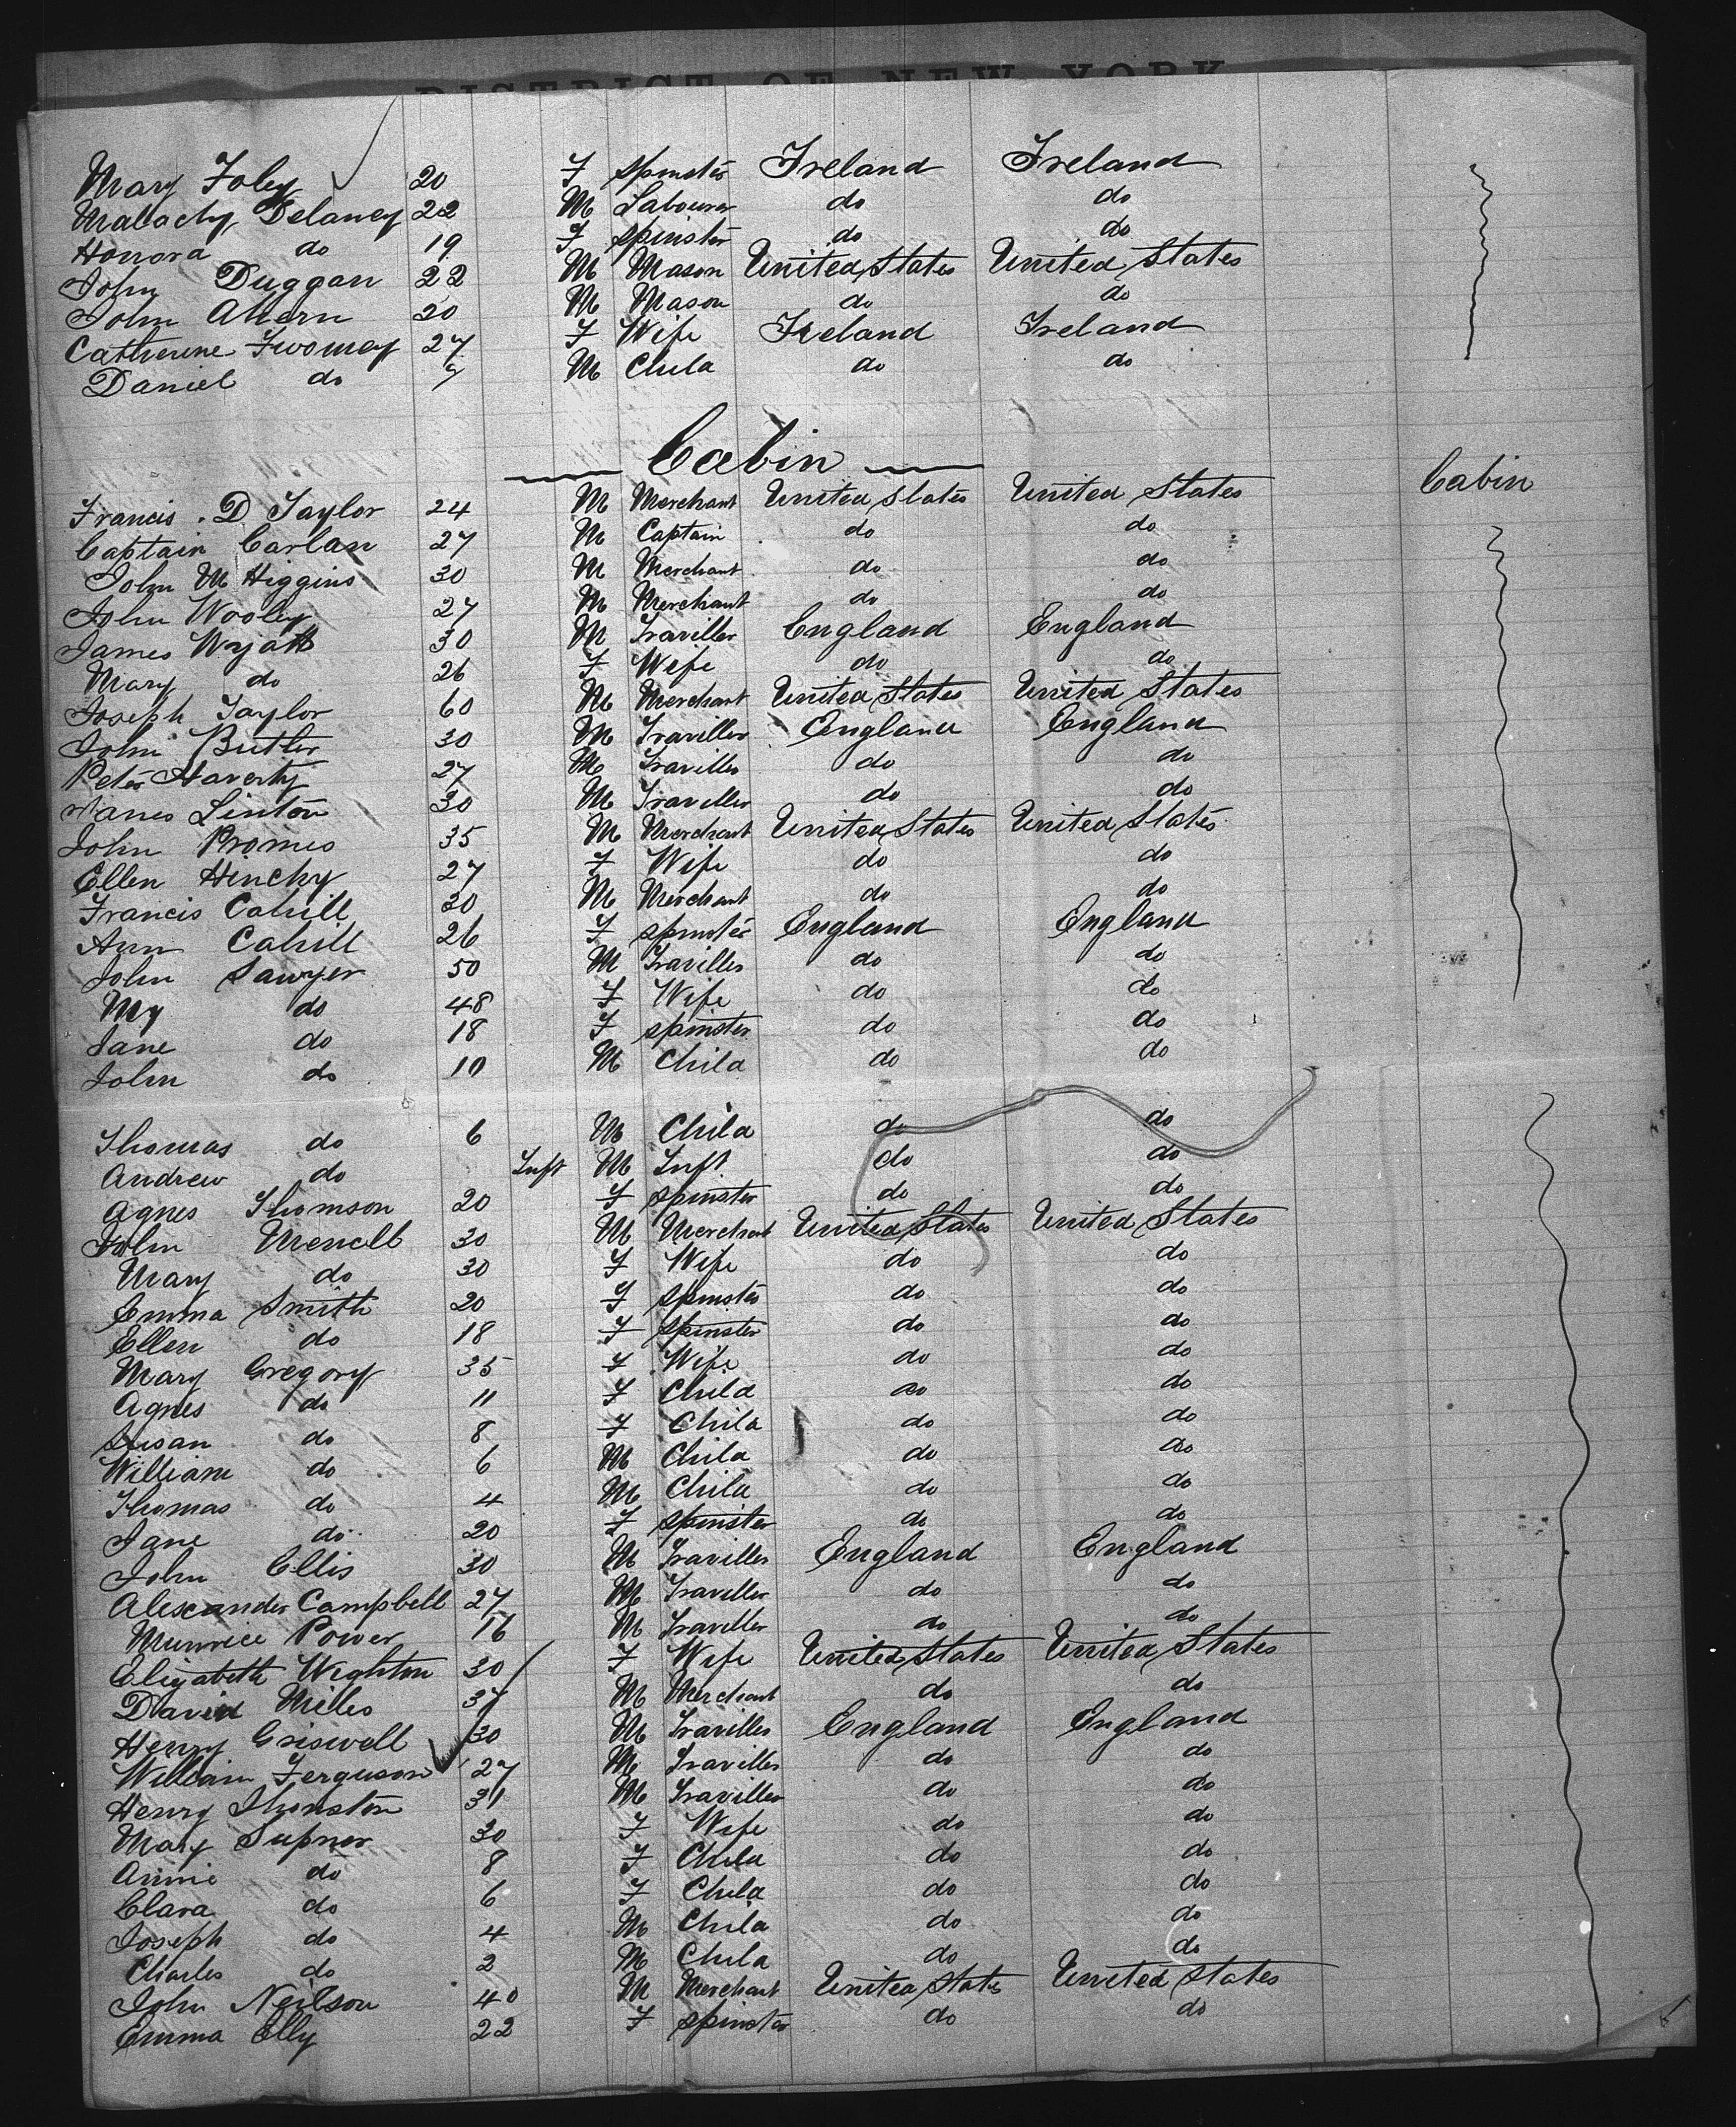 DISTRICT OF NEW YORK
Mary Foley 20 F Spinster Ireland Ireland
Malachy Delaney 22 M Labourer do do
Honora do 19 F Spinster do do
John Duggan 22 M Mason United States United States
John Ahern 20 M Mason do do
Catherine Twomey 27 F Wife Ireland Ireland
Daniel do M Child do do
Cabin
Cabin
Francis D Taylor 24 M Merchant United States United States
Captain Carlan 27 M Captain do do
John M Higgins 30 M Merchant do do
John Wooley 27 M Merchant do do
James Wyatt 30 M Traviller England England
Mary do 26 F Wife do do
Joseph Taylor 60 M Merchant United States United States
John Butler 30 M Traviller England England
Peter Haverty 27 M Traviller do do
James Linton 30 M Traveller do do
John Promis 35 M Merchant United States United States
Ellen Hinchy 27 F Wife do do
Francis Cahill 30 M Merchant do do
Ann Cahill 26 F Spinster England England
John Sawyer 50 M Traviller do do
My do 48 F Wife do do
Jane do 18 F Spinster do do
John do 10 M Child do do
Thomas do 6 M Child do do
Andrew do Inft M Inft do do
Agnes Thomson 20 F Spinster do do
John 30 M Merchant United States United States
Mary do 30 F Wife do do
Emma Smith 20 F Spinster do do
Ellen do 18 F Spinster do do
Mary Gregory 35 F Wife do do
Agnes do 11 F Child do do
Susan do 8 F Child do do
William do 6 M Child do do
Thomas do 4 M Child do do
Jane do 20 F Spinster do do
John Ellis 30 M Traviller England England
Alexander Campbell 27 M Traveller do do
Power 16 M Traveller do do
Elizabeth Wighton 30 F Wife United States United States
David Miles 37 M Merchant do do
Henry Criswell 30 M Traviller England England
William Ferguson 27 M Traviller do do
Henry Thonston 31 M Traviller do do
Mary Supner 30 F Wife do do
Annie do 8 F Child do do
Clara do 6 F Child do do
Joseph do 4 M Child do do
Charles do 2 M Child do do
John Neilson 40 M Merchant United States United States
Emma Elly 22 F Spinster do do